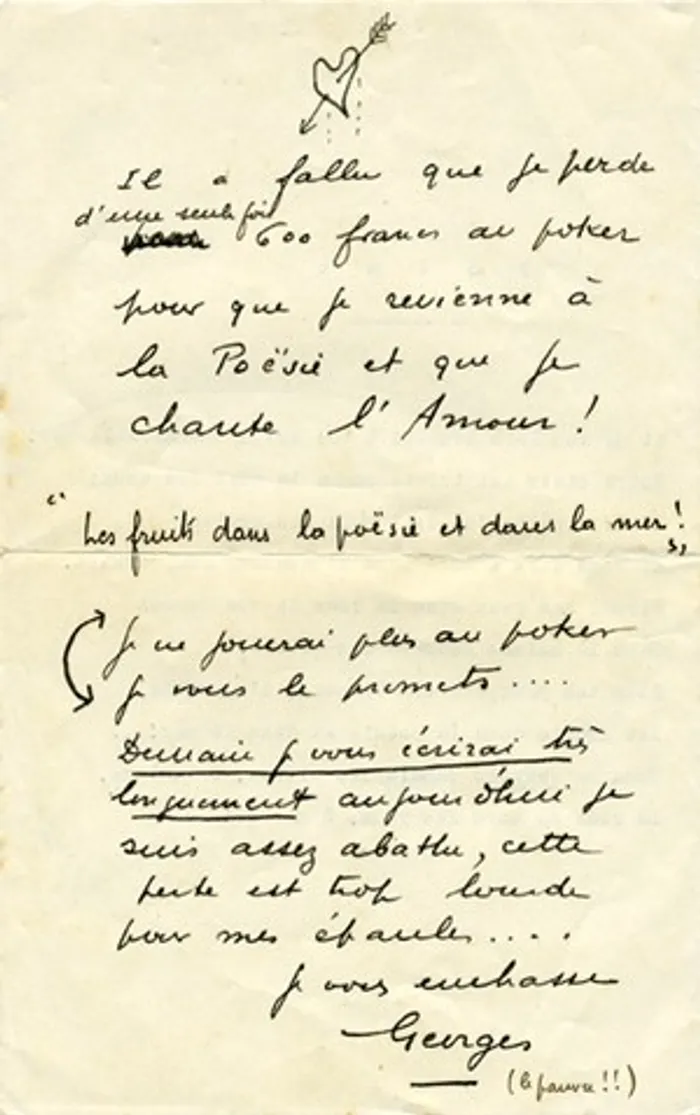 Il a fallu que je perde
d'une seule fois
600 francs au poker
pour que je revienne à
la Poësie et que je
chante l'Amour!
"Les fruits dans la poësie et dans la mer!"
Je ne jouerai plus au poker
je vous le promets....
Demain je vous écrirai très
longuement aujourd'hui je
suis assez abattu, cette
perte est trop lourde
pour mes épaules....
Je vous embrasse
Georges
(le pauvre!!)